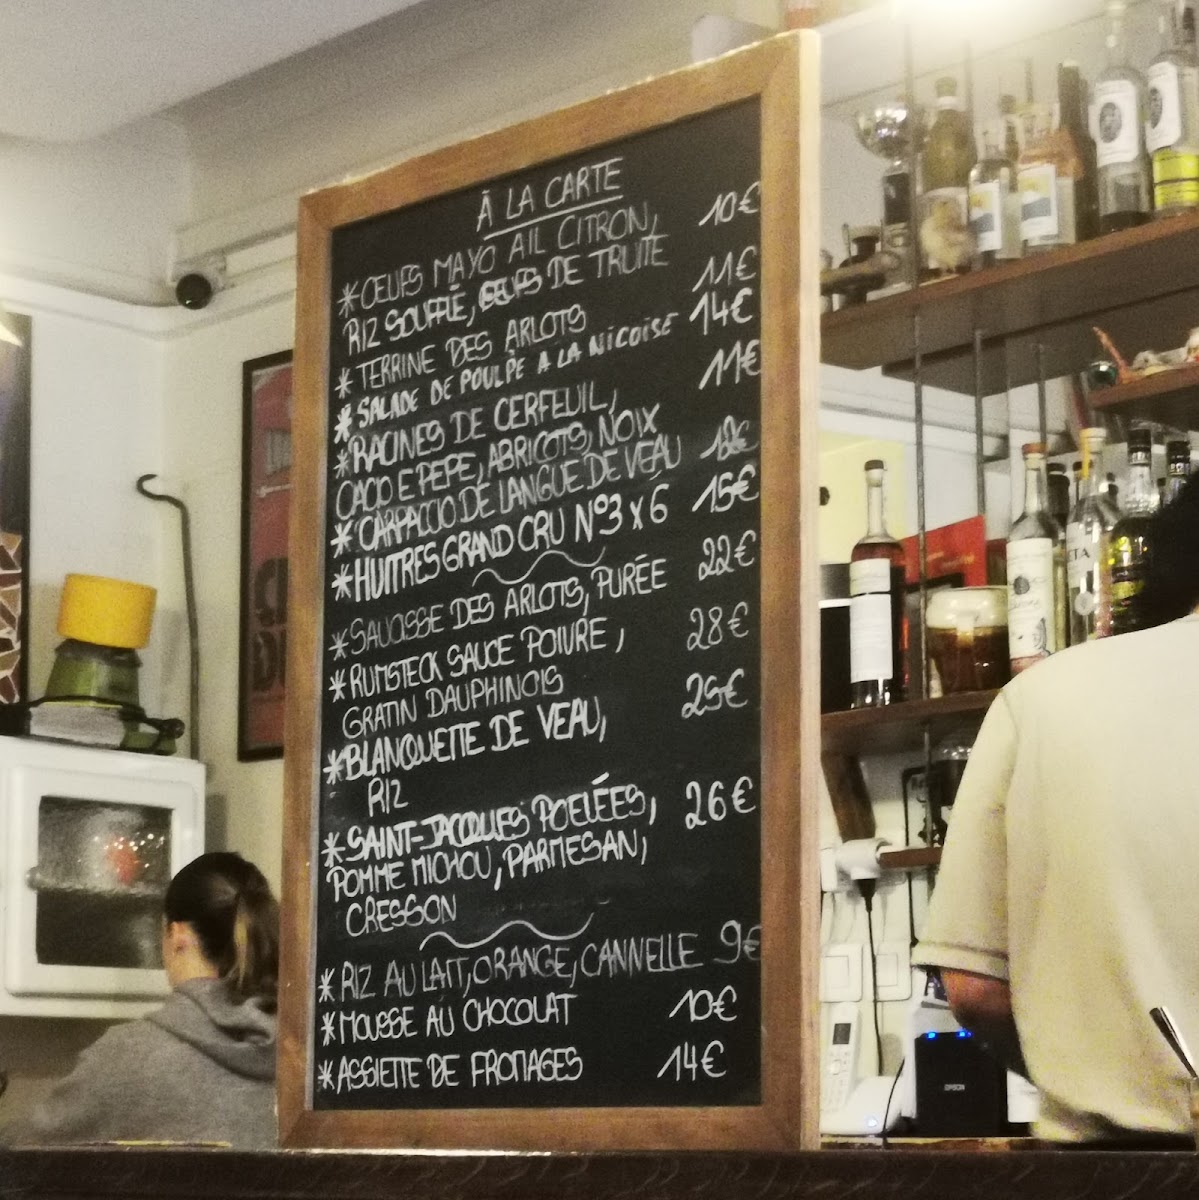 À LA CARTE
*OEUFS MAYO AIL CITRON, 10€
RIZ SOUFFLÉ, OEUFS DE TRUITE
*TERRINE DES ARLOTS 11€
*SALADE DE POULPE A LA NICOISE 14€
*RACINES DE CERFEUIL, 11€
CACIO E PEPE, ABRICOTS, NOIX
*CARPACCIO DE LANGUE DE VEAU
*HUITRES GRAND CRU N°3 x 6 15€
*SAUCISSE DES ARLOTS, PURÉE 22€
*RUMSTECK SAUCE POIVRE, 28€
GRATIN DAUPHINOIS
*BLANQUETTE DE VEAU, 25€
RIZ
*SAINT-JACQUES POELÉES, 26€
POMME MICHOU, PARMESAN,
CRESSON
*RIZ AU LAIT, ORANGE, CANNELLE 9€
*MOUSSE AU CHOCOLAT 10€
*ASSIETTE DE FROMAGES 14€
EPSON